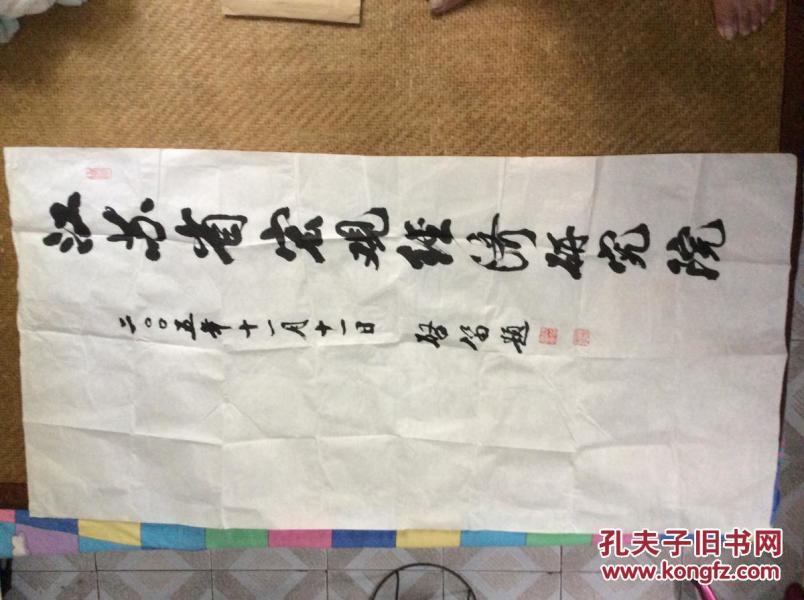 江苏省宏观经济研究院
二〇〇五年十一月十一日 啓笛题
孔夫子旧书网
www.kongfz.com